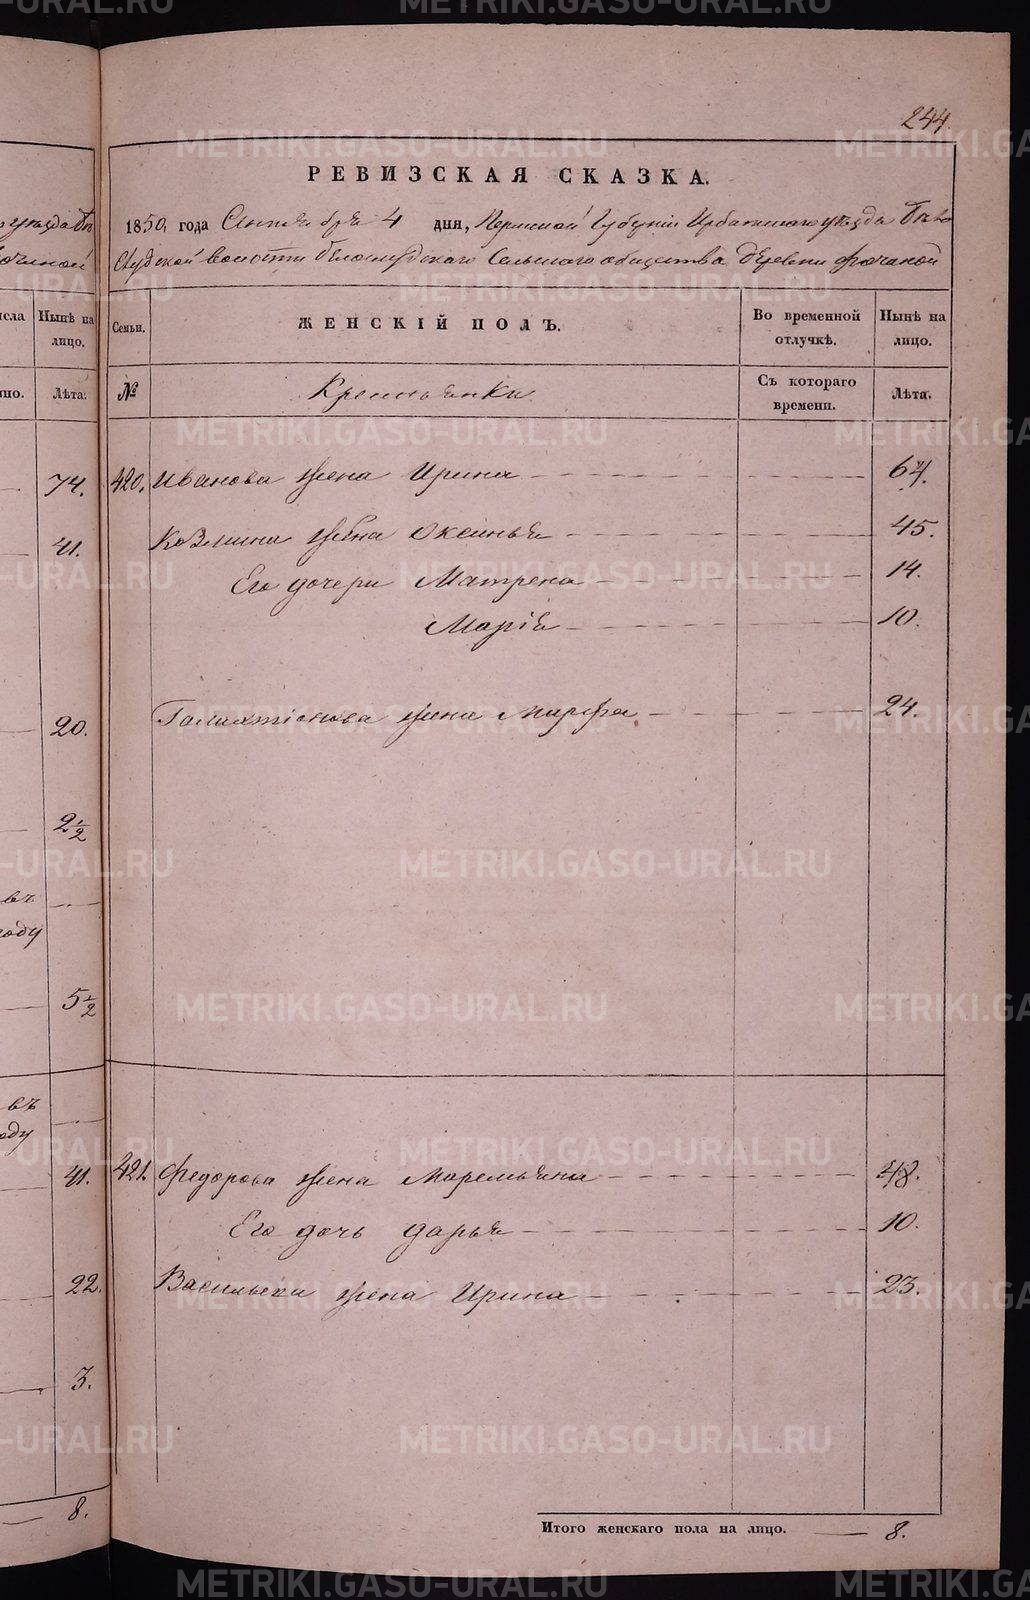 244.
РЕВИЗСКАЯ СКАЗКА.
1850 года Сентября 4 дня, Пермской Губернiи Ирбитскаго уѣзда Бѣло
Слудской волости Бѣлослудскаго Сельскаго общества деревни Фочиной
Семьи.
ЖЕНСКIЙ ПОЛЪ.
Во временной отлучкѣ.
Нынѣ на лицо.
№
Крестьянки
Съ котораго времени.
Лѣта.
420. Иванова жена Ирина 67.
Козмина жена Оксинья 45.
Его дочери Матрена 14.
Марiя 10.
Галактiонова жена Марфа 24.
421. Федорова жена Маремьяна 48.
Его дочь Дарья 10.
Васильева жена Ирина 23.
Итого женскаго пола на лицо. 8.
Нынѣ на лицо.
Лѣта.
74.
41.
20.
2 1/2
въ
году
5 1/2
въ
41.
22.
3.
8.
METRIKI.GASO-URAL.RU